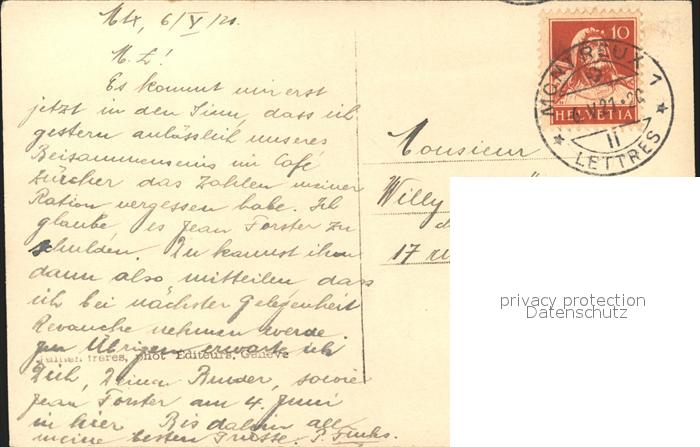 Mtx, 6/V/21.
M. L!
Es kommt mir erst
jetzt in den Sinn, dass ich
gestern anlässlich unseres
Beisammenseins im Café
Zürcher das Zahlen meiner
Ration vergessen habe. Ich
glaube, es Jean Forster zu
schulden. Du kannst ihm
dann also mitteilen, dass
ich bei nächster Gelegenheit
Revanche nehmen werde.
Im Übrigen erwarte ich
frères, phot Editeurs, Genève
Dich, Deinen Bruder, sowie
Jean Forster am 4. Juni
in hier. Bis dahin all
meine besten Grüsse. P. Fuchs.
10
HELVETIA
MONTREUX 1
6.V.21
II
LETTRES
Monsieur
Willy
17
privacy protection
Datenschutz